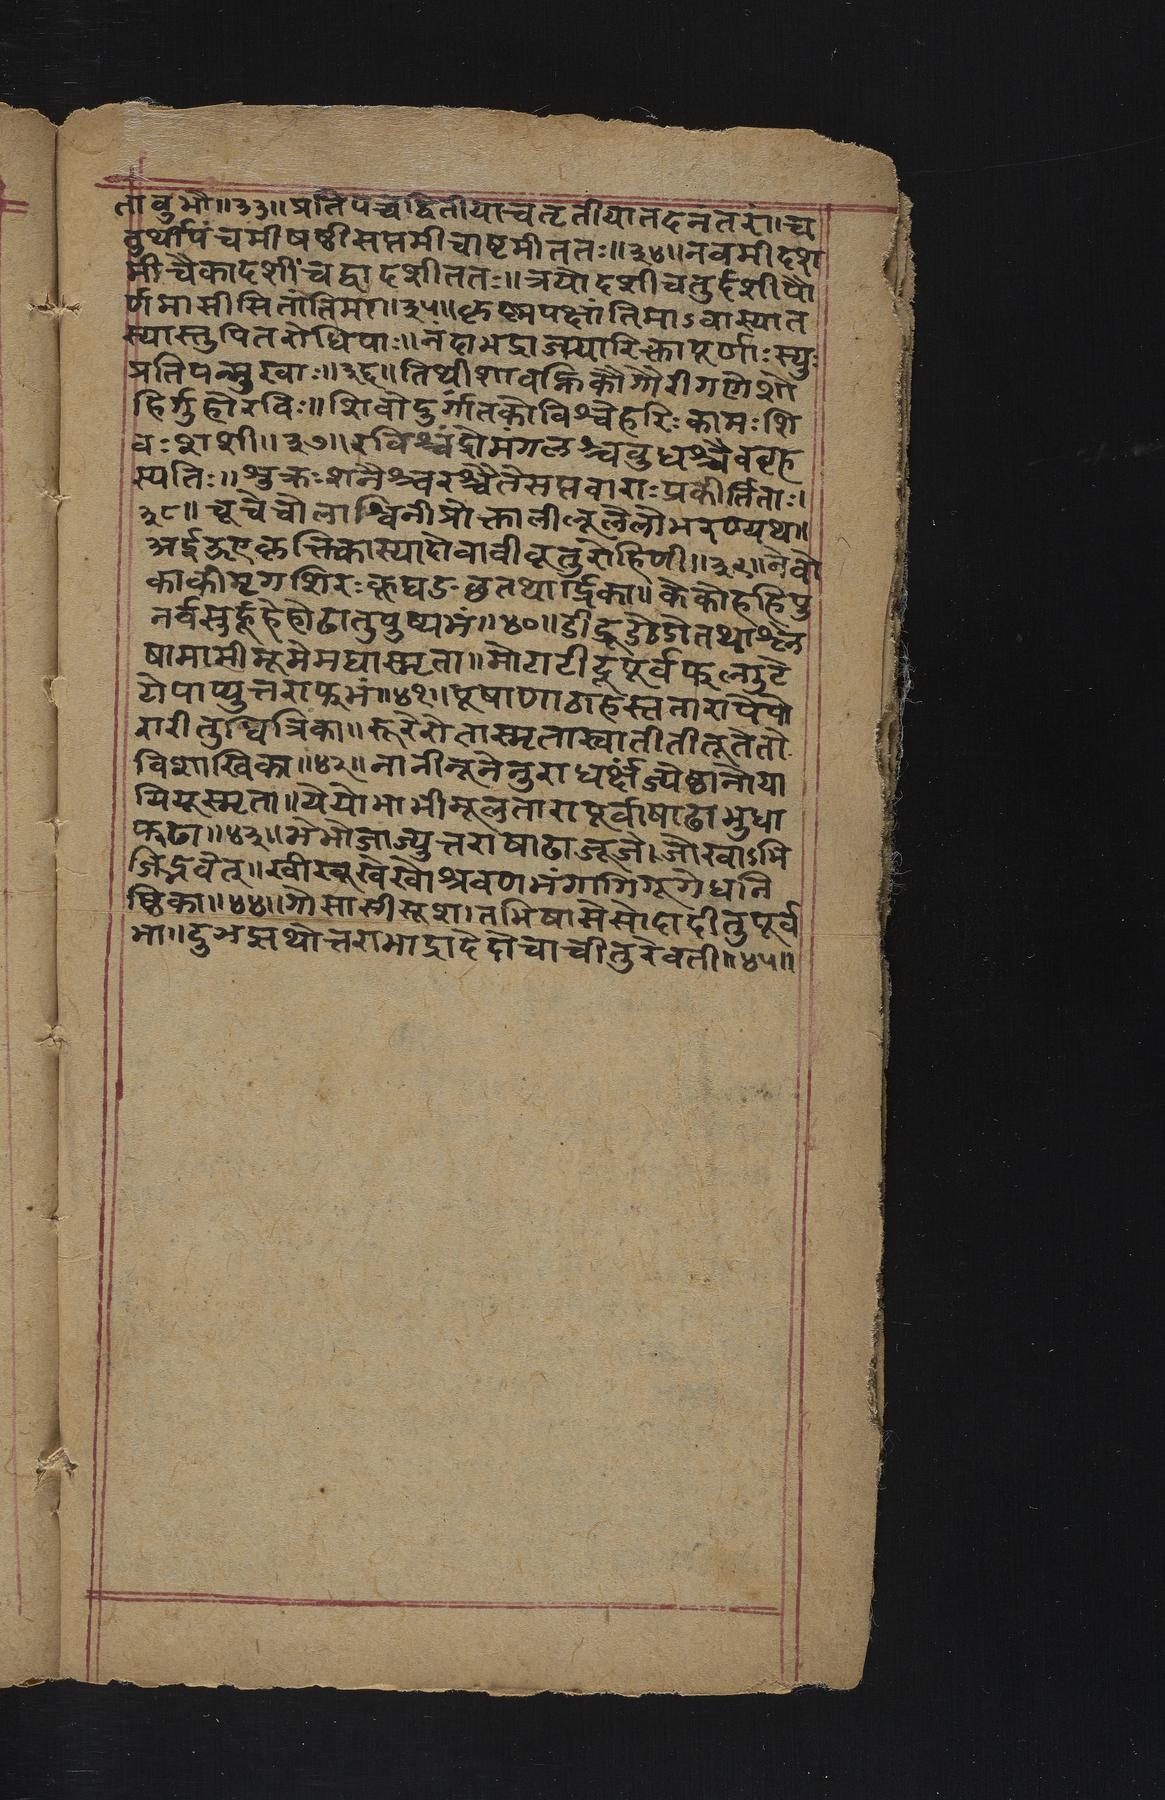 तावुभौ॥३३॥प्रतिपच्चद्वितीयाचतृतीयातदनंतरां॥च
तुर्थीपंचमीषष्ठीसप्तमीचाष्टमीततः॥३४॥नवमीदश
मीचैकादशींचद्वादशीततः॥त्रयोदशीचतुर्दशीपौ
र्णमासीसितांतिमा॥३५॥कृष्णपक्षांतिमाऽवास्यात
स्यास्तुपितरोधिपाः॥नंदाभद्राजयारिक्तापूर्णाःस्युः
प्रतिपन्मुखाः॥३६॥तिथीशावह्निकौगौरीगणेशो
हिर्गुहोरविः॥शिवोदुर्गांतकोविश्वेहरिःकामःशि
वःशशी॥३७॥रविश्चंद्रोमंगलश्चबुधश्चैवबृह
स्पतिः॥शुक्रःशनैश्चरश्चैतेसप्तवाराःप्रकीर्तिताः।
३८॥चूचेचोलाश्विनीप्रोक्तालीलूलेलोभरण्यथ॥
अईऊएकृत्तिकास्यादोवावीवूतुरोहिणी॥३९॥वेवो
काकीमृगशिरःकूघङछतथार्द्रिका॥केकोहहिपु
नर्वसुर्हूहेहोढातुपुष्यभं॥४०॥डीडूडेडोतथाश्ले
षामामीमूमेमघास्मृता॥मोटाटीटूपूर्वफल्गुटे
टोपाप्युत्तराफभं॥४१॥पूषाणाठाहस्ततारापेपो
रारीतुचित्रिका॥रूरेरोतास्मृतास्वातीतीतूतेतो
विशाखिका॥४२॥नानीनूनेनुराधर्क्षंज्येष्ठानोया
यियूस्मृता॥येयोभाभीमूलतारापूर्वाषाढाभुधा
फढा॥४३॥भेभोजाज्युत्तराषाढाजूजे।जोखाऽभि
जिद्भवेत्॥खीखूखेखोश्रवणभंगागिगूगेधनि
ष्ठिका॥४४॥गोसासीसूश।तभिषासेसोदादीतुपूर्व
भा॥दुञझथोत्तराभाद्रादेदोचाचीतुरेवती॥४५॥